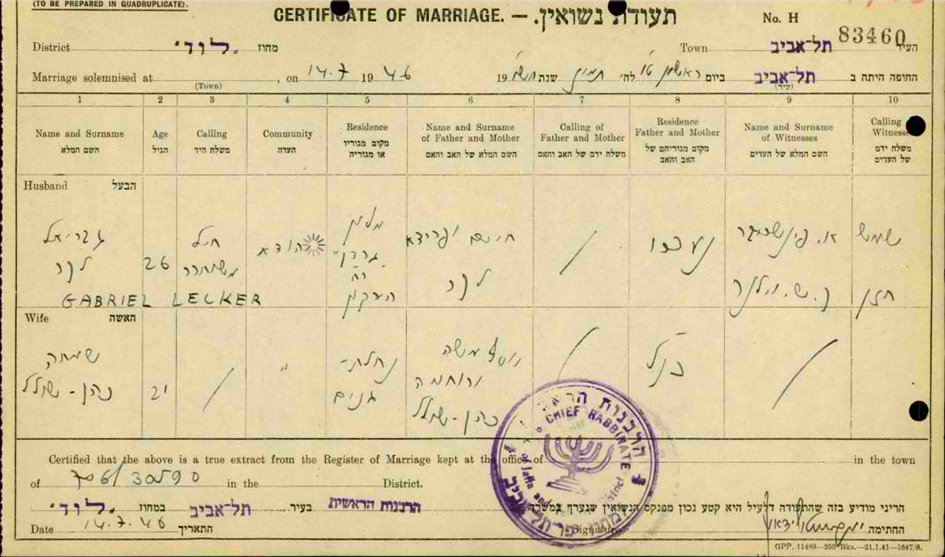 (TO BE PREPARED IN QUADRUPLICATE).
CERTIFICATE OF MARRIAGE. — תעודת נשואין.
No. H 83460
District "לוד" מחוז
Town תל-אביב העיר
Marriage solemnised at , on 14.7 1946
ביום ראשון טו לח' תמוז שנת תש"ו 19
תל-אביב החופה היתה ב
(Town) (עיר)
1 2 3 4 5 6 7 8 9 10
Name and Surname
השם המלא
Age
הגיל
Calling
משלח היד
Community
העדה
Residence
מקום מגוריו
או מגוריה
Name and Surname
of Father and Mother
השם המלא של האב והאם
Calling of
Father and Mother
משלח ידם של האב והאם
Residence
Father and Mother
מקום מגוריהם של
האב והאם
Name and Surname
of Witnesses
השם המלא של העדים
Calling
Witness
משלח ידם
של העדים
Husband הבעל
גבריאל
לקר
GABRIEL LECKER
26
חיל
משוחרר
חיים ופרידא
לקר
שמש
חזן
Wife האשה
שמחה
כהן-
21
"
נחלת-
גנים
יוסף משה
ורוחמה
כהן-
כנ"ל
Certified that the above is a true extract from the Register of Marriage kept at the office of in the town
of 706/30590 in the District.
הריני מודיע בזה שהתעודה דלעיל היא קטע נכון מפנקס הנשואין שנערך במשרד
הרבנות הראשית בעיר תל-אביב במחוז "לוד"
Date 14.7.46 התאריך
Signature החתימה
הרבנות הראשית
CHIEF RABBINATE
of Jaffa and District
GPP. 11488—250 Bks.—21.1.41—1647/8.